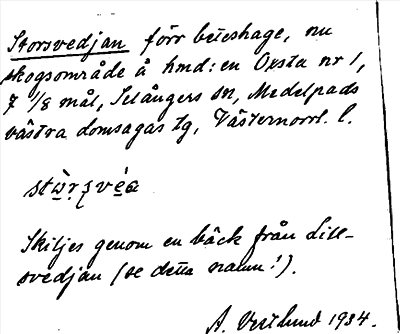 Storsvedjan förr beteshage, nu
skogsområde å hmd: en Oxsta nr 1,
7 1/8 mål, Selångers sn, Medelpads
västra domsagas tg, Västernorrl. l.
Skiljes genom en bäck från Lill-
svedjan (se detta namn!).
A. Vestlund 1934.